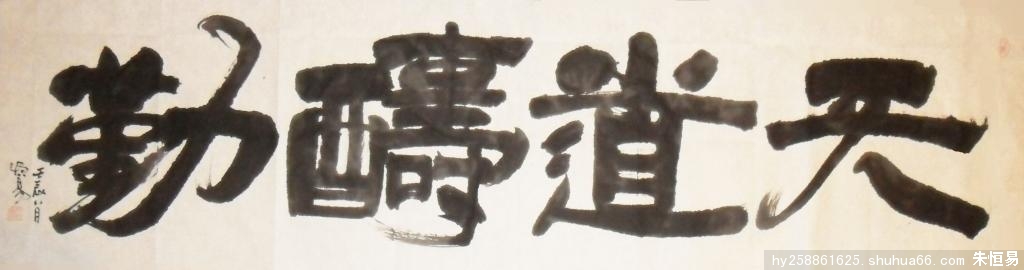 天道醻勤
壬辰六月
hy258861625.shuhua66.com 朱恒易